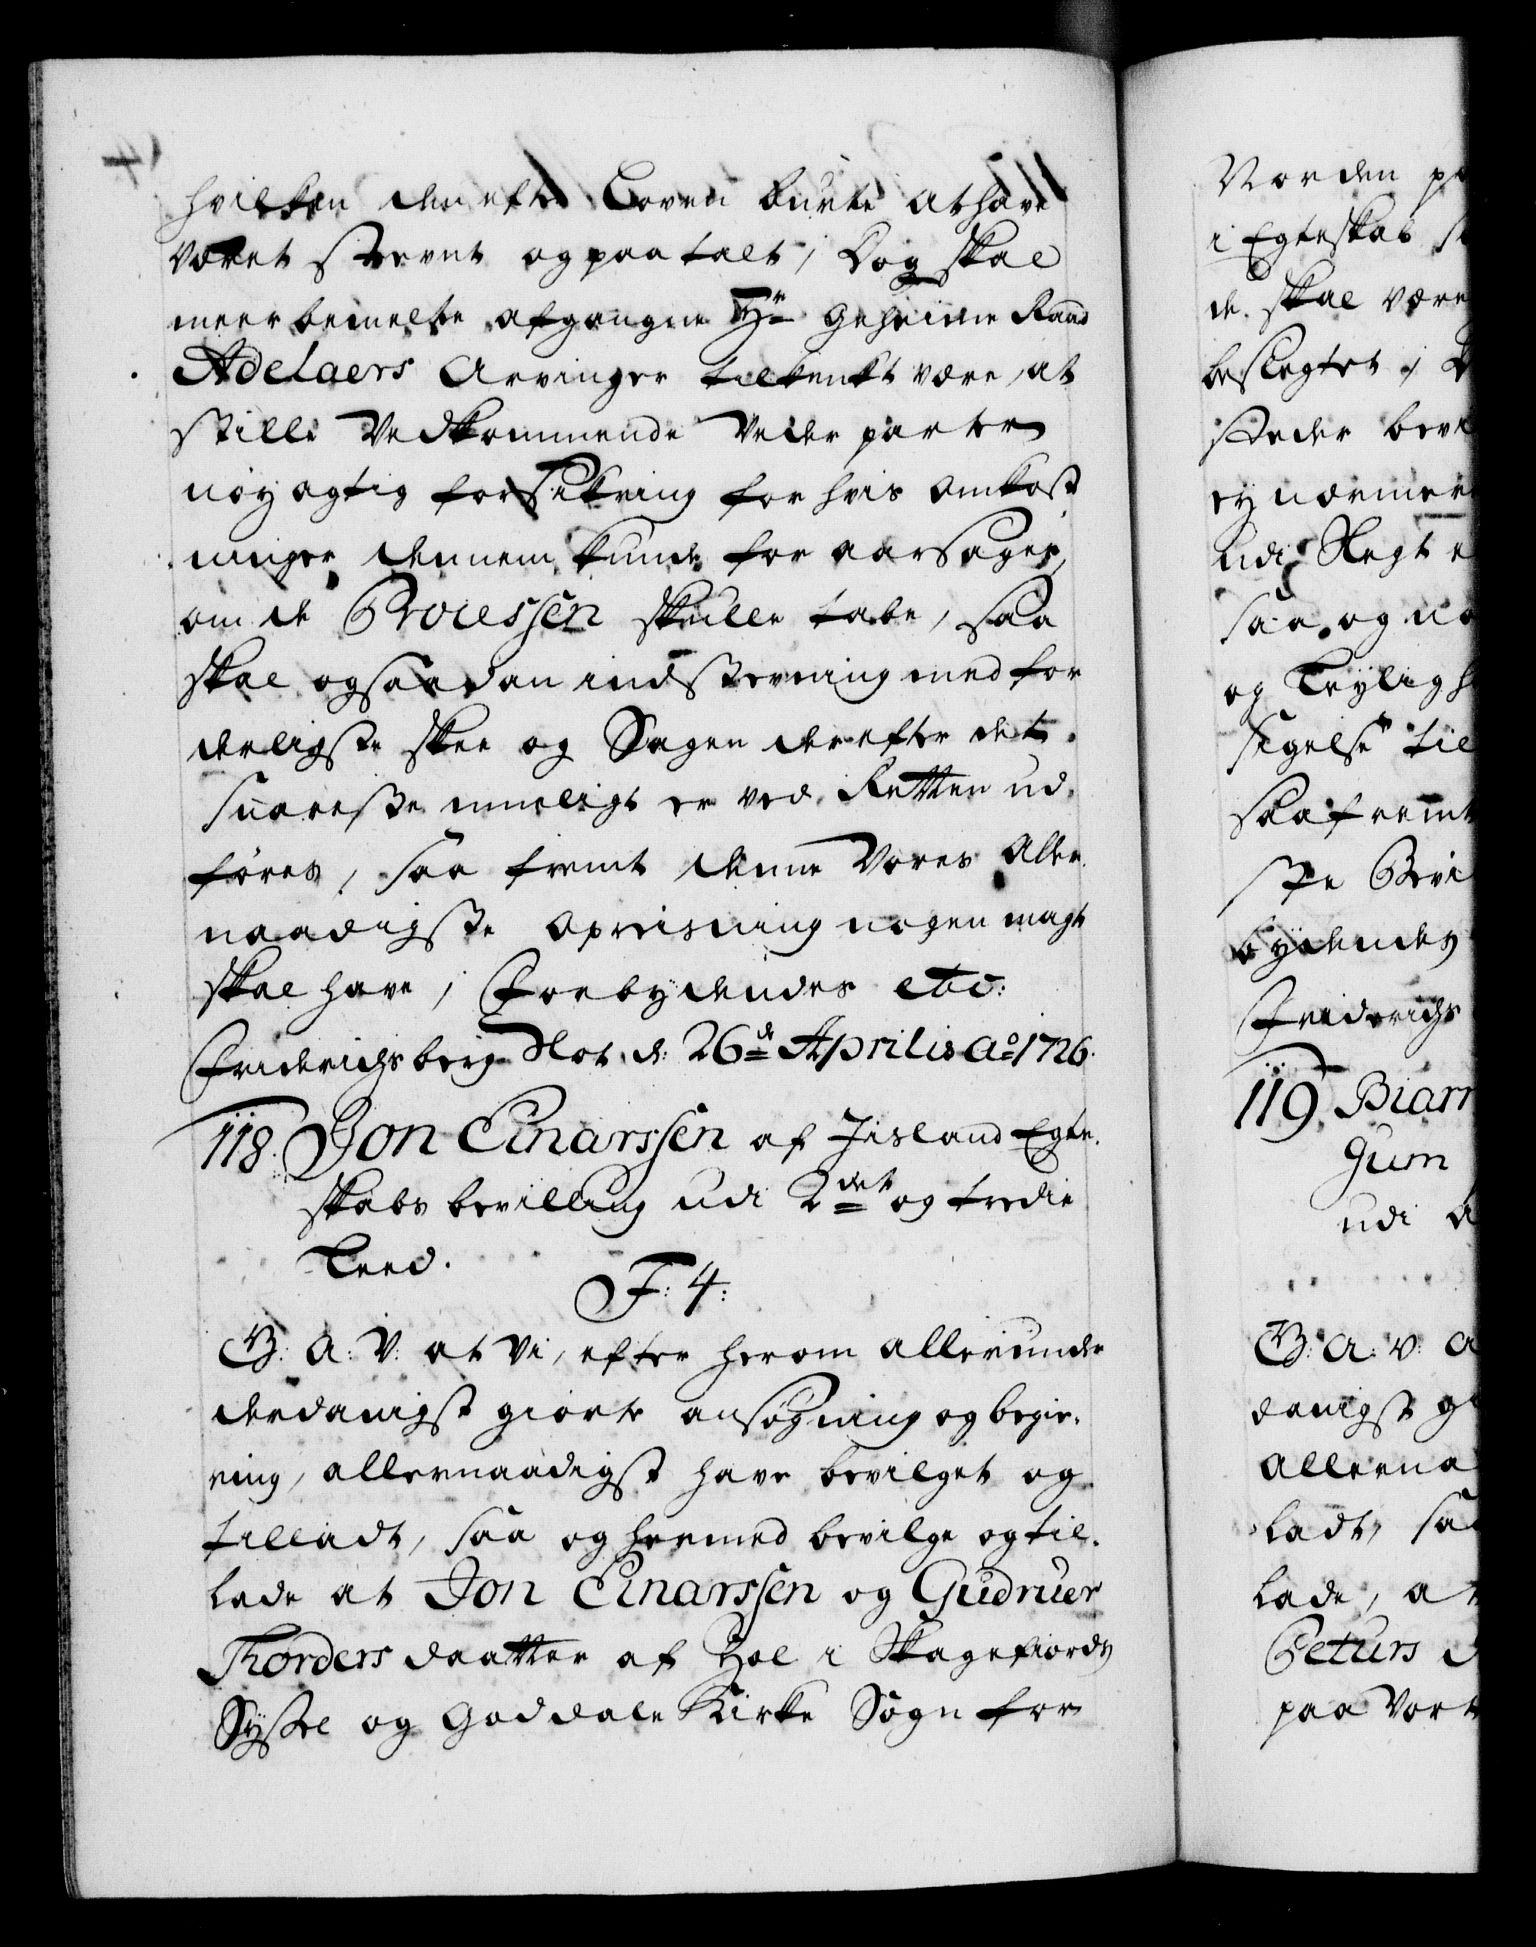 hvilken den efter Loven burte at have
været stevnt og paatalt, Dog skal
meerbemelte afgangne Hr Geheime Raad
Adelaers Arvinger tiltenkt være, at
stille Vedkommende Veder parter
nøyagtig forsikring for hvis Omkost
ninger dennem kunde foraarsages,
om de Processen skulle tabe, saa
skal og saadan indstevning med for
derligste skee og Sagen derefter det
snareste mueligt er ved Retten ud,
føres, saa fremt denne Vores Aller
naadigste Opreisning nogen magt
skal have, Forbydendes etc:
Friderichsberg Slot d: 26de Aprilis Ao 1726.
118. Jon Einarssen af Iisland Egte,
skabs bevilling udi 2det og tredie
Leed.
F: 4:
G: A: V: at Vi, efter herom allerunder
derdanigst giorte ansøgning og begie,
ring, allernaadigst have bevilget og
tilladt, saa og hermed bevilge og til,
lade at Jon Einarssen og Gudruer
Thorders daatter af Hol i Skagefiords
Syssel og Goddale Kirke Sogn for
Norden pa
i Egteskab
de skal være
beslegtet
steder bevi
ey nærmere
udi Slegt e
saa og no
og Leylig h
sigelse til
saafremt
ste Bevi
bydendes
Friderichs
119. Biarn
Gum
udi
G: A: V: a
danigst gi
Allerna
ladt, saa
lade, at
Peturs
paa Vort